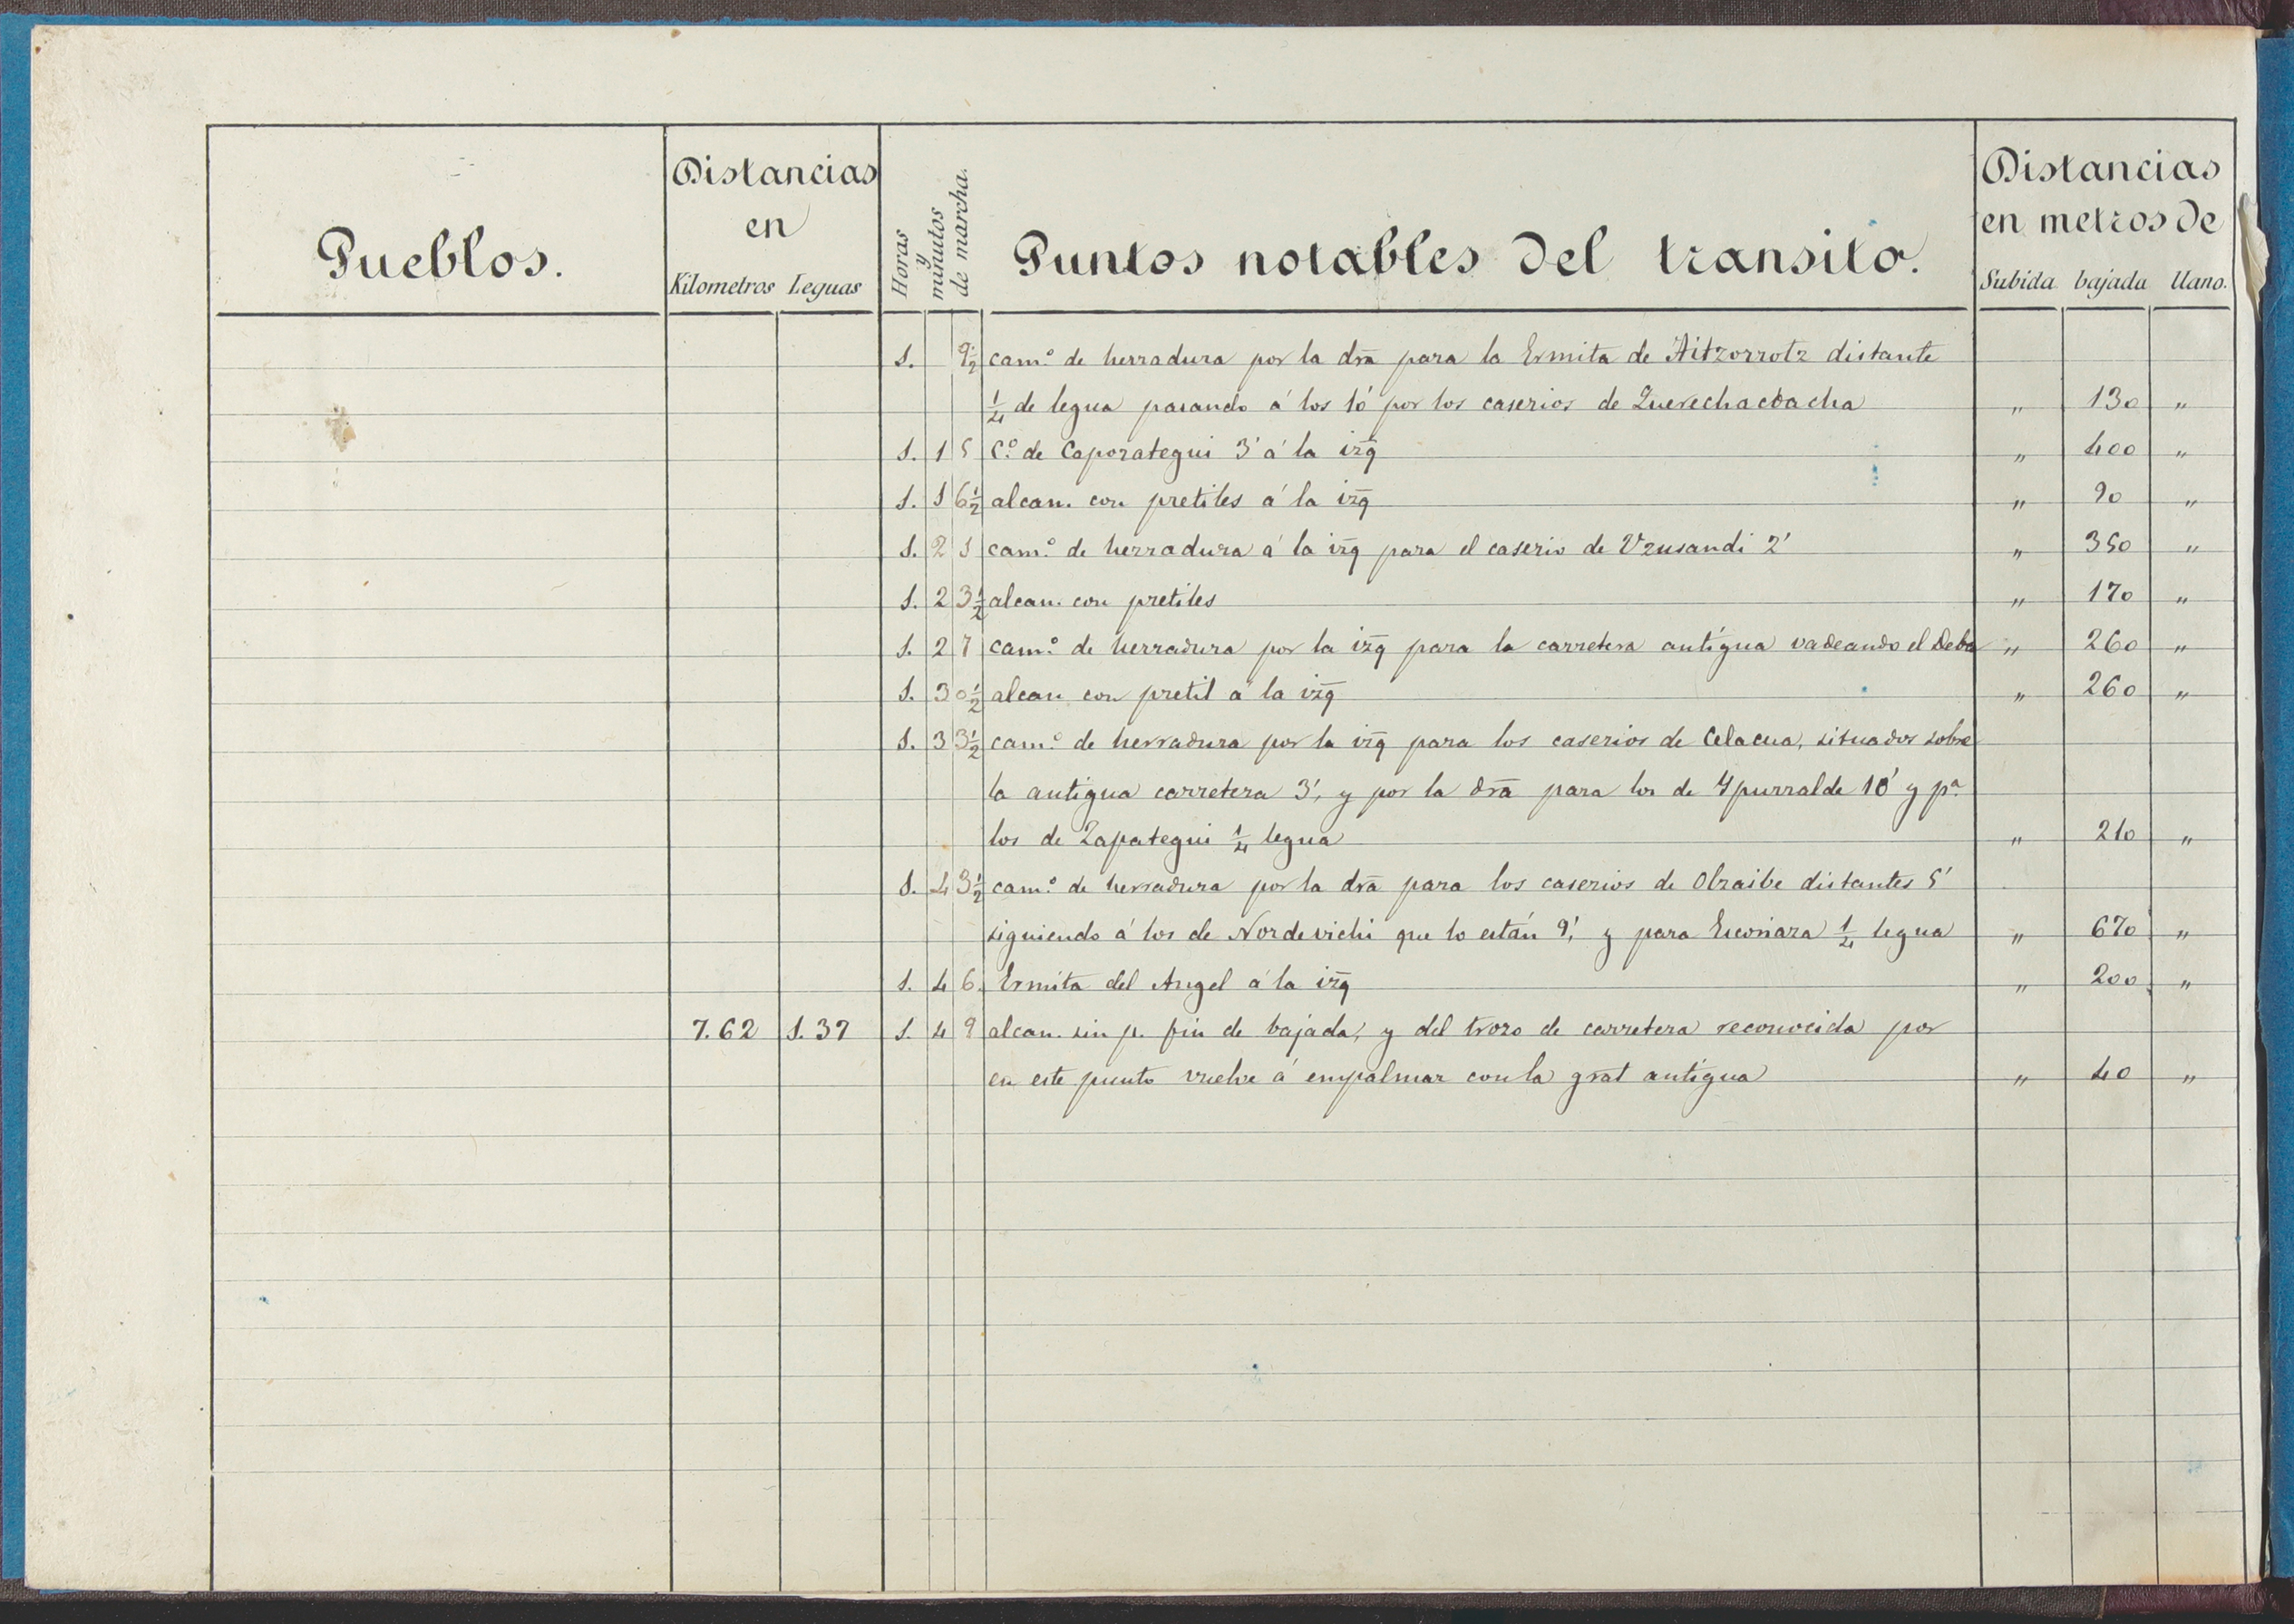 Pueblos.
Distancias
en
Kilometros Leguas
Horas
y
minutos
de marcha.
Puntos notables del transito.
Distancias
en metros de
Subida bajada llano.
1. 9½ cam.º de herradura por la drã para la Ermita de Aitzorrotz distante
¼ de legua pasando á los 10' por los caserios de " 130 "
1. 1 5 C.º de Caporategui 3' á la izq̃ " 400 "
1. 1 6½ alcan. con pretiles á la izq̃ " 90 "
1. 2 1 cam.º de herradura á la izq̃ para el caserio de Urusandi 2' " 350 "
1. 2 3½ alcan. con pretiles " 170 "
1. 2 7 cam.º de herradura por la izq̃ para la carretera antígua vadeando el Deba " 260 "
1. 3 0½ alcan con pretil á la izq̃ " 260 "
1. 3 3½ cam.º de herradura por la izq̃ para los caserios de Celacua, situados sobre
la antigua carretera 3', y por la drã para los de Ypurralde 10' y p.ª
los de Zapategui ¼ legua " 210 "
1. 4 3½ cam.º de herradura por la drã para los caserios de Olraibe distantes 5'
siguiendo á los de Nordevichi que lo están 9', y para ¼ legua " 670 "
1. 4 6. Ermita del Angel á la izq̃ " 200 "
7.62 1.37 1. 4 9 alcan. sin p. fin de bajada, y del trozo de carretera reconocida por
en este punto vuelve á empalmar con la gral antigua " 40 "